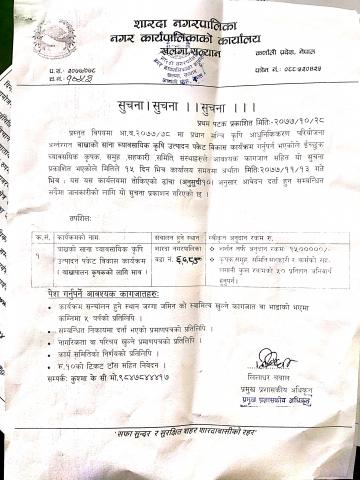 शारदा नगरपालिका
नगर कार्यपालिकाको कार्यालय
खलंगा,सल्यान
कर्णाली प्रदेश, नेपाल
प.सं.-२०७७/०७८
च.नं.
फोन नं.: ०८८-५२०४२५
सूचना।सूचना ।।सूचना ।।।
प्रथम पटक प्रकाशित मिति:-२०७७/१०/२८
प्रस्तुत विषयमा आ.व.२०७७/७८ मा प्रधान मन्त्रि कृषि आधुनिकिकरण परियोजना
अन्तरगत बाख्राको साना व्यावसायिक कृषि उत्पादन पकेट विकास कार्यक्रम गर्नुपर्ने भएकोले ईच्छुक
व्यावसायिक कृषक, समुह ,सहकारी ,समिति संस्थाहरुले आवश्यक कागजात सहित यो सूचना
प्रकाशित भएकोले मितिले १५ दिन भित्र कार्यालय समयमा अर्थात मिति:-२०७७/११/१३ गते
भित्र यस कार्यालयमा तोकिएको ढांचा (अनुसुची१०) अनुसार आवेदन दर्ता हुन सम्बन्धित
सबैमा जानकारीको लागि यो सूचना प्रकाशन गरिएको छ ।
तपशिल:
क.सं. कार्यक्रमको नाम संचालन हुने स्थान स्वीकृत अनुदान रकम रु.
१ बाख्राको साना व्यावसायिक कृषि उत्पादन पकेट विकास कार्यक्रम ( बाख्रापालन कृषकको लागि मात्र ) शारदा नगरपालिका वडा नं.
कृषक,समुह,समिति,सहकारी र फर्मको सह
पेश गर्नुपर्ने आवश्यक कागजातहरु:
• कार्यक्रम सञ्चालन हुने स्थान जग्गा जमिन को स्वामित्व खुल्ने कागजात वा भाडाको भएमा
कम्तिमा ५ वर्षको प्रतिलिपि ।
• सम्बन्धित निकायमा दर्ता भएको प्रमाणपत्रको प्रतिलिपि ।
• नागरिकता वा परिचय खुल्ने प्रमाणपत्रको प्रतिलिपि ।
• कार्य समितिको निर्णयको प्रतिलिपि ।
• रु.१०को टिकट टाँस सहित निवेदन ।
सम्पर्क: कुश्मा के सी मो.९८४७८४४४१७
प्रमुख प्रशासकीय अधिकृत
प्रमुख प्रशासकीय अधिकृत
"सफा सुन्दर र सुरक्षित शहर शारदाबासीको रहर"